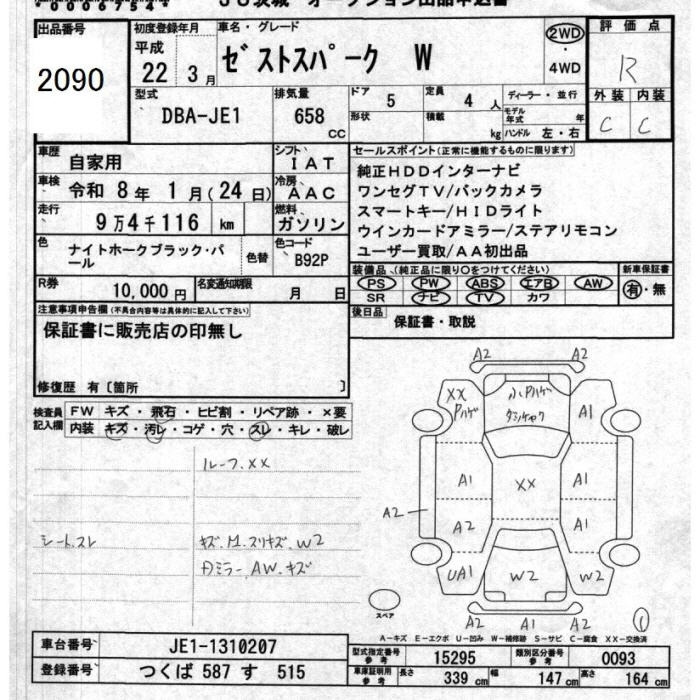 出品番号 初度登録年月 車名・グレード 評価点
2090 平成 22年 3月 ｾﾞｽﾄｽﾊﾟｰｸ W 2WD・4WD R
型式 排気量 ドア 5 定員 4人 ディーラー・並行 外装 内装
DBA-JE1 658cc 形状 積載 kg モデル年式 年 ハンドル 左・右 C C
車歴 自家用 シフト IAT セールスポイント(正常に機能するものに限ります)
車検 令和 8年 1月(24日) 冷房 AAC 純正HDDインターナビ
走行 9万4千116 km 燃料 ガソリン ワンセグTV/バックカメラ
スマートキー/HIDライト
ウインカードアミラー/ステアリモコン
色 ナイトホークブラック・パール 色替 色コード B92P ユーザー買取/AA初出品
R券 10,000円 名変通知期限 月 日 装備品(純正品に限り○をつけてください) 新車保証書
PS PW ABS エアB AW 有・無
SR ナビ TV カワ
注意事項申告欄(不具合内容等は具体的に記入して下さい) 後日品 保証書・取説
保証書に販売店の印無し
修復歴 有〔箇所 〕
検査員記入欄 FW キズ・飛石・ヒビ割・リペア跡・×要
内装 キズ・汚レ・コゲ・穴・スレ・キレ・破レ
ルーフ.XX
シート.スレ キズ.M.スリキズ.W2
Dミラー.AW.キズ
A2 A2
XX Pハゲ 小Pハゲ A1
A1 XX A1
A2 A2 A1
UA1 W2 W2
A2 A1 A2
スペア
A-キズ E-エクボ U-凹み W-補修跡 S-サビ C-腐食 XX-交換済
車台番号 JE1-1310207 型式指定番号 参考 15295 類別区分番号 参考 0093
登録番号 つくば 587 す 515 車庫証明用 参考 長さ 339 cm 幅 147 cm 高さ 164 cm